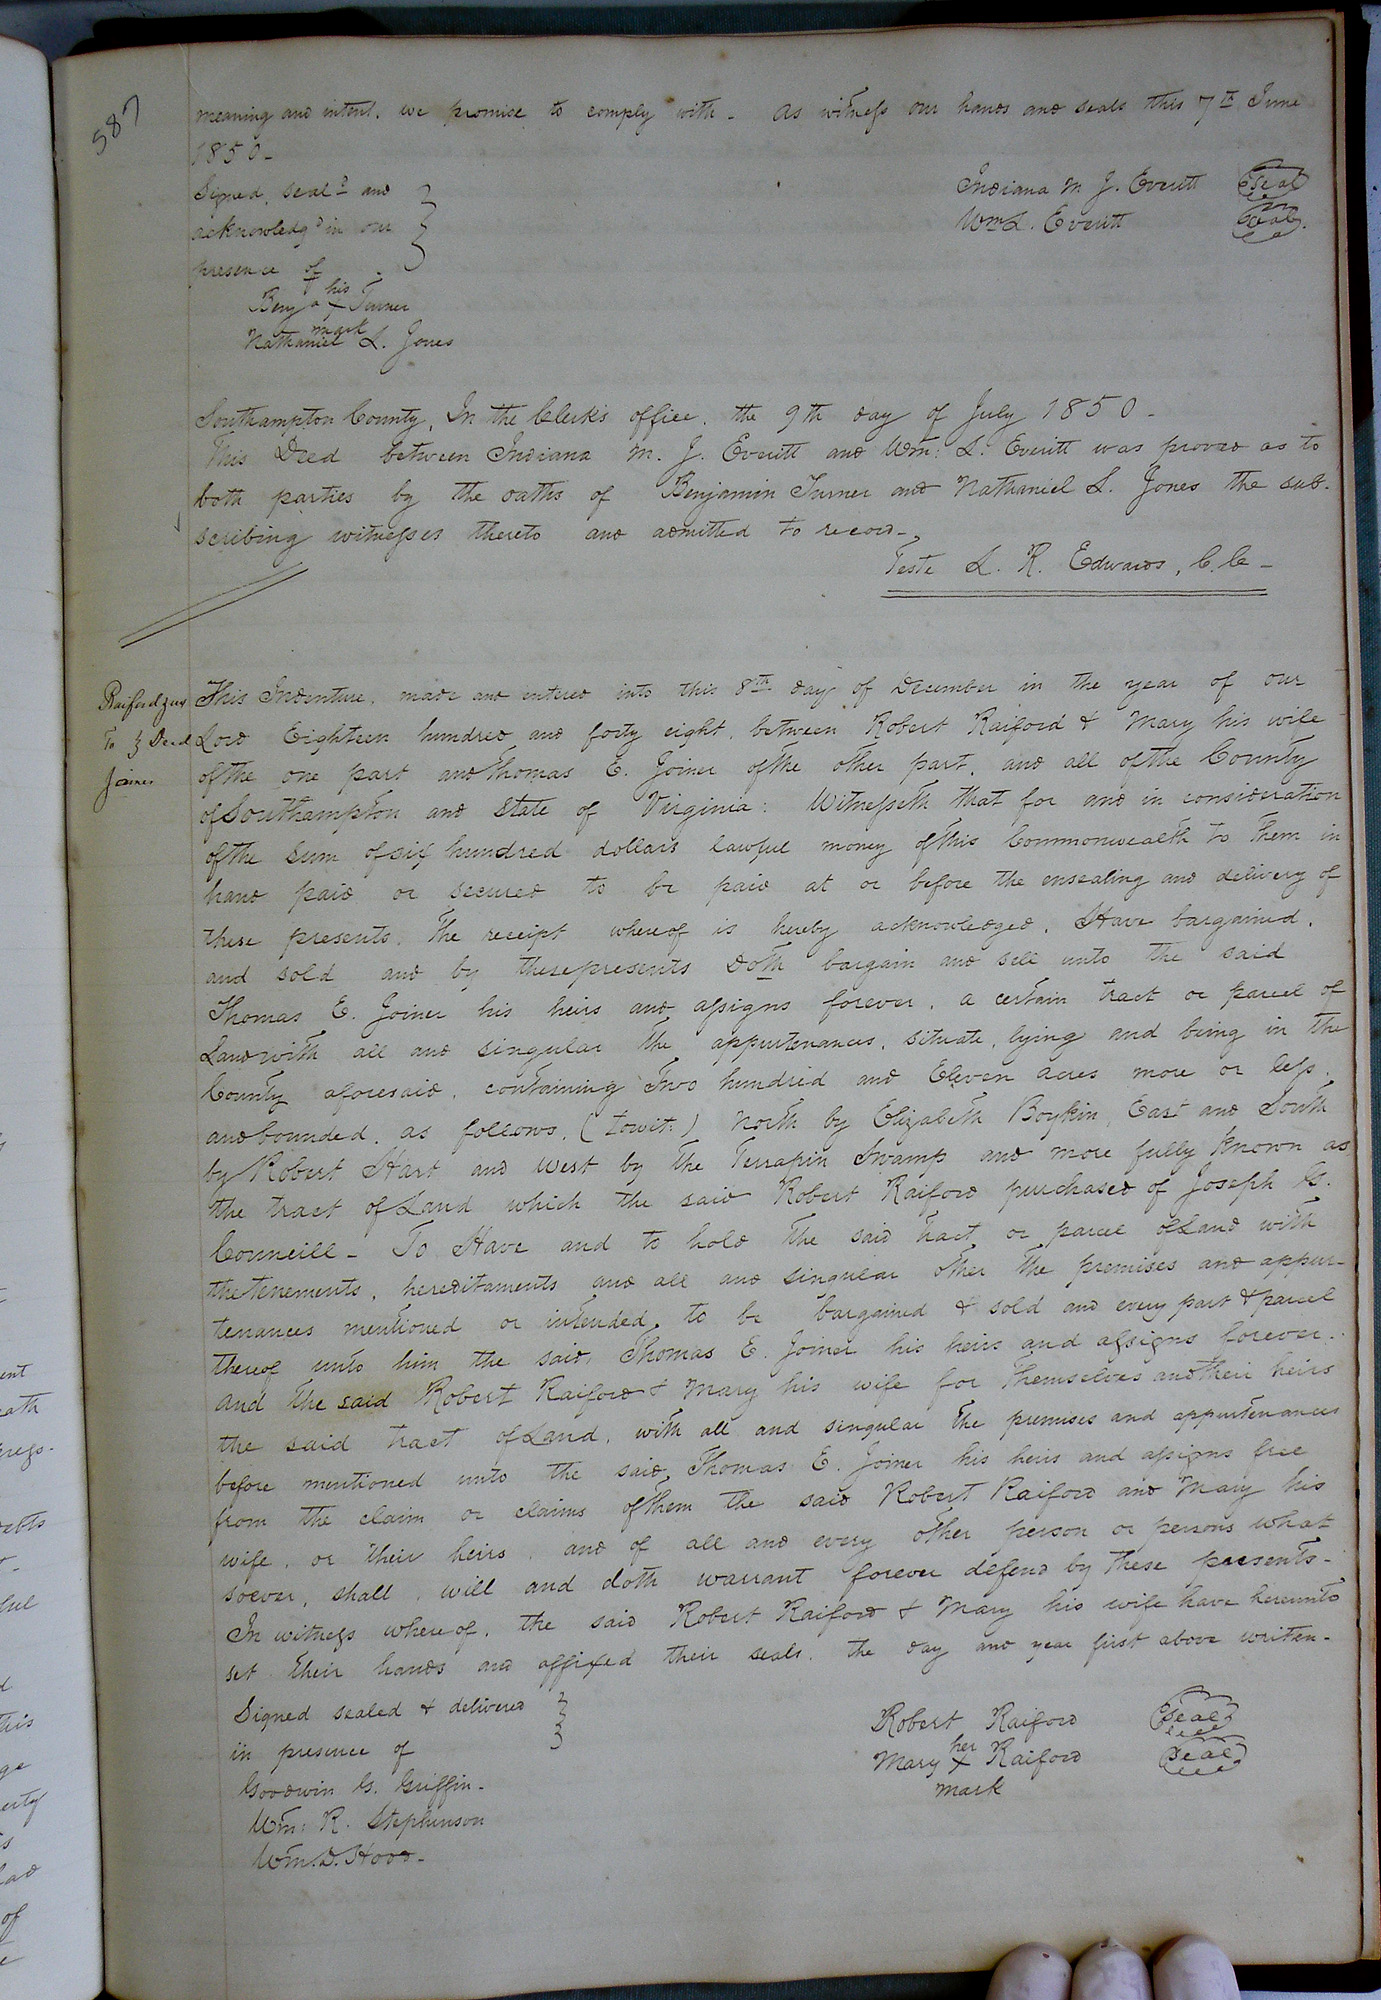 587
meaning and intent, we promise to comply with - As witness our hands and seals this 7th June
1850 -
Signed, seal'd and
acknowledg'd in our
presence of
Benja his x mark Turner
Nathaniel L. Jones
Indiana M. J. Everitt Seal
Wm L. Everitt Seal
Southampton County, In the Clerk's office, the 9th day of July 1850 -
This Deed between Indiana M. J. Everitt and Wm: L. Everitt was proved as to
both parties by the oaths of Benjamin Turner and Nathaniel L. Jones the sub-
scribing witnesses thereto and admitted to record -
Teste L. R. Edwards, C. C. -
Raiford & ux
To } Deed
Joiner
This Indenture, made and entered into this 8th day of December in the year of our
Lord Eighteen hundred and forty eight, between Robert Raiford & Mary his wife
of the one part and Thomas E. Joiner of the other part, and all of the County
of Southampton and State of Virginia: Witnesseth that for and in consideration
of the sum of six hundred dollars lawful money of this Commonwealth to them in
hand paid or secured to be paid at or before the ensealing and delivery of
these presents, the receipt whereof is hereby acknowledged, Have bargained,
and sold and by these presents doth bargain and sell unto the said
Thomas E. Joiner his heirs and assigns forever, a certain tract or parcel of
Land with all and singular the appurtenances, situate, lying and being in the
County aforesaid, containing Two hundred and Eleven acres more or less,
and bounded, as follows, (towit:) North by Elizabeth Boykin, East and South
by Robert Hart and West by the Terrapin Swamp and more fully known as
the tract of Land which the said Robert Raiford purchased of Joseph G.
Councill - To Have and to hold the said tract or parcel of Land with
the tenements, hereditaments and all and singular other the premises and appur-
tenances mentioned or intended to be bargained & sold and every part & parcel
thereof unto him the said, Thomas E. Joiner his heirs and assigns forever.
And the said Robert Raiford & Mary his wife for themselves and their heirs
the said tract of Land, with all and singular the premises and appurtenances
before mentioned unto the said, Thomas E. Joiner his heirs and assigns free
from the claim or claims of them the said Robert Raiford and Mary his
wife, or their heirs, and of all and every other person or persons what
soever, shall, will and doth warrant forever defend by these presents -
In witness whereof, the said Robert Raiford & Mary his wife have hereunto
set their hands and affixed their seals, the day and year first above writen -
Signed sealed & delivered
in presence of
Goodwin G. Griffin -
Wm: R. Stephenson
Wm. D. Hood -
Robert Raiford Seal
Mary her x mark Raiford Seal